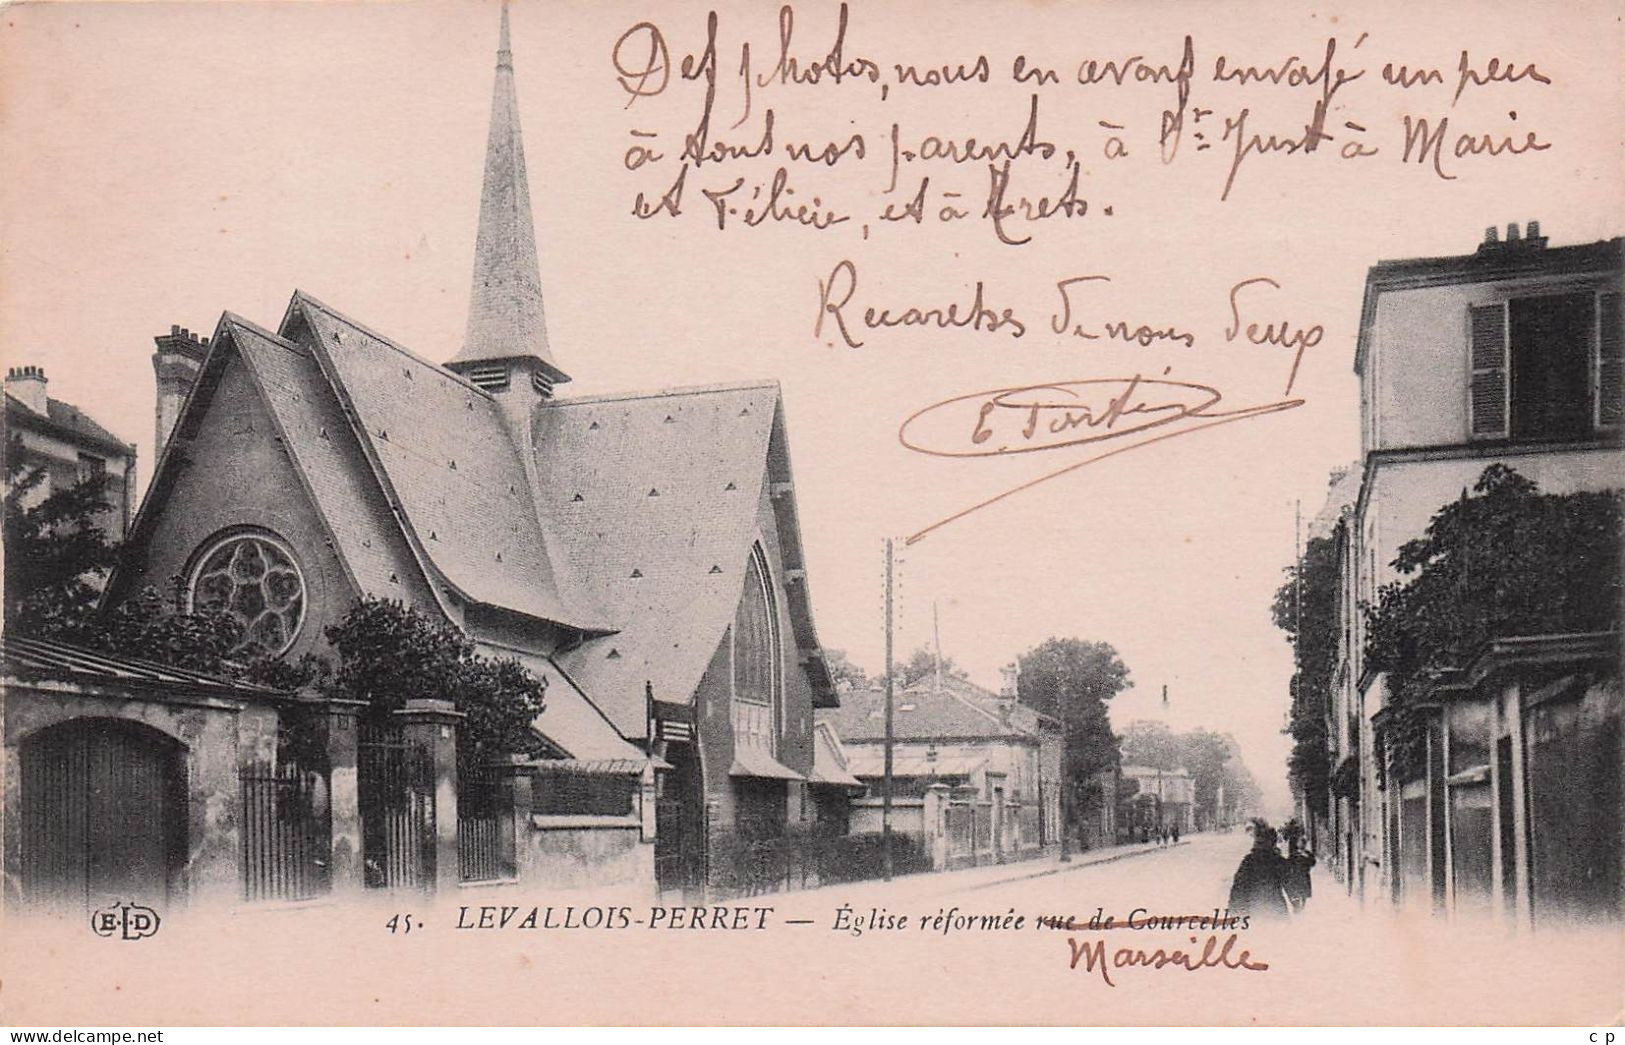 Des photos, nous en avons envoyé un peu
à tous nos parents, à St Just à Marie
et Félicie, et à Trets.
Recaresses de nous deux
E.L.D
45. LEVALLOIS-PERRET — Église réformée rue de Courcelles
Marseille
www.delcampe.net
c p